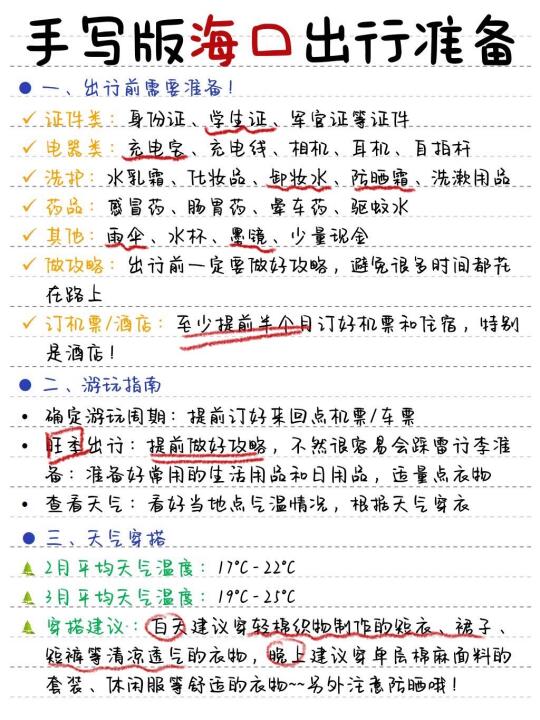 手写版海口出行准备
● 一、出行前需要准备！
✓ 证件类：身份证、学生证、军官证等证件
✓ 电器类：充电宝、充电线、相机、耳机、自拍杆
✓ 洗护：水乳霜、化妆品、卸妆水、防晒霜、洗漱用品
✓ 药品：感冒药、肠胃药、晕车药、驱蚊水
✓ 其他：雨伞、水杯、墨镜、少量现金
✓ 做攻略：出行前一定要做好攻略，避免很多时间都花
在路上
✓ 订机票/酒店：至少提前半个月订好机票和住宿，特别
是酒店！
● 二、游玩指南
• 确定游玩周期：提前订好来回点机票/车票
• 旺季出行：提前做好攻略，不然很容易会踩雷行李准
备：准备好常用的生活用品和日用品，适量点衣物
• 查看天气：看好当地点气温情况，根据天气穿衣
● 三、天气穿搭
2月平均天气温度：17°C-22°C
3月平均天气温度：19°C-25°C
穿搭建议：白天建议穿轻棉织物制作的短衣、裙子、
短裤等清凉透气的衣物，晚上建议穿单层棉麻面料的
套装、休闲服等舒适的衣物~~另外注意防晒哦！